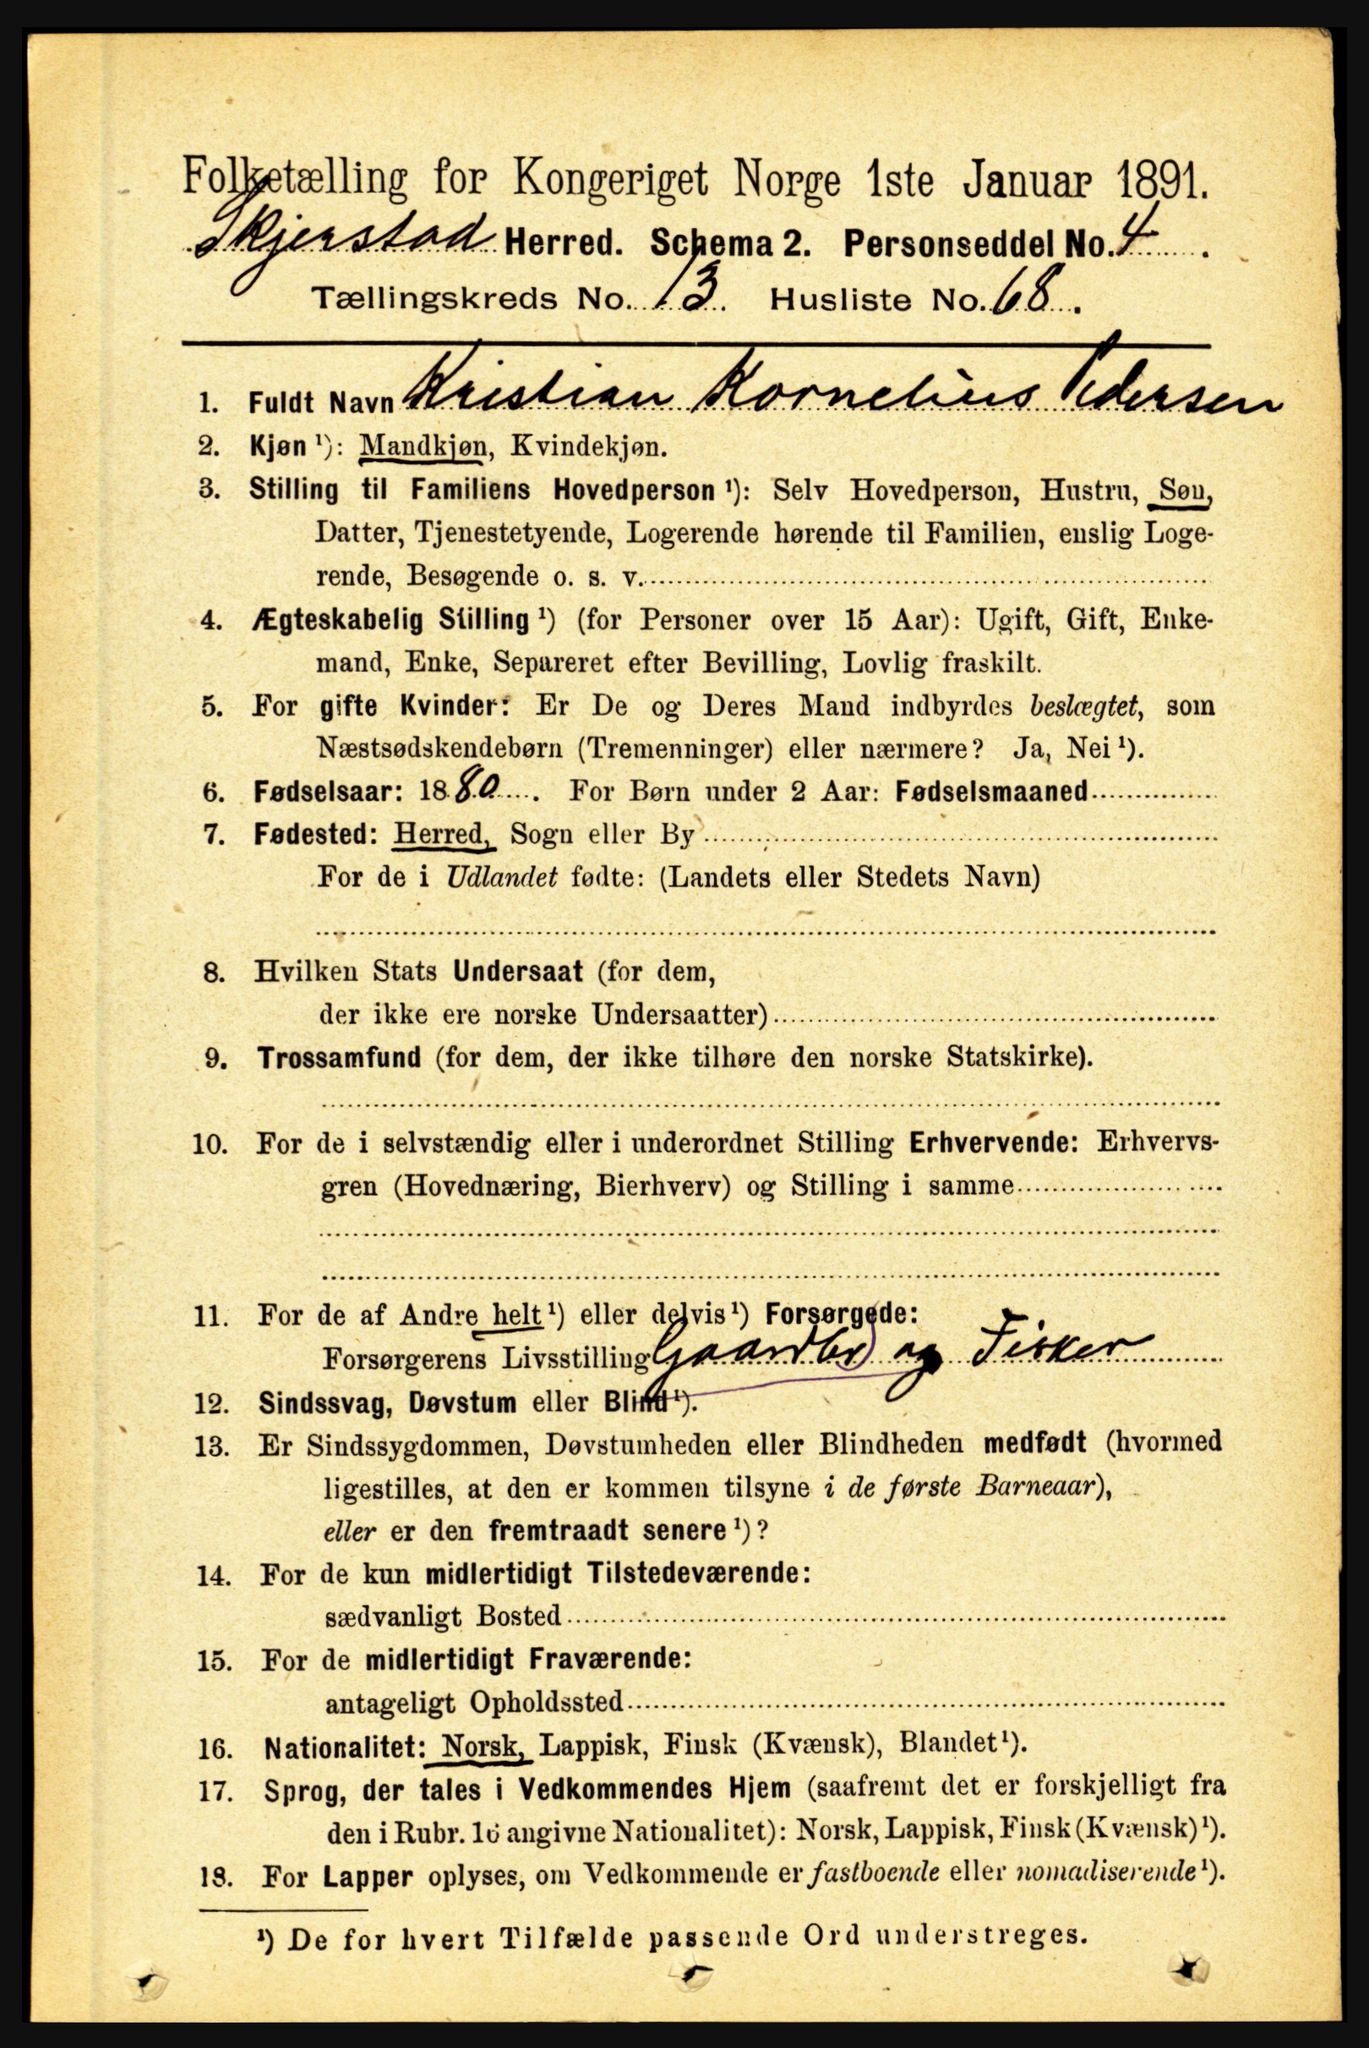 Folketælling for Kongeriget Norge 1ste Januar 1891.
Skjerstad Herred. Schema 2. Personseddel No. 4.
Tællingskreds No. 13. Husliste No. 68.
1. Fuldt Navn Kristian Kornelius Pedersen
2. Kjøn ¹): Mandkjøn, Kvindekjøn.
3. Stilling til Familiens Hovedperson ¹): Selv Hovedperson, Hustru, Søn,
Datter, Tjenestetyende, Logerende hørende til Familien, enslig Loge-
rende, Besøgende o. s. v.
4. Ægteskabelig Stilling ¹) (for Personer over 15 Aar): Ugift, Gift, Enke-
mand, Enke, Separeret efter Bevilling, Lovlig fraskilt.
5. For gifte Kvinder: Er De og Deres Mand indbyrdes beslægtet, som
Næstsødskendebørn (Tremenninger) eller nærmere? Ja, Nei ¹).
6. Fødselsaar: 1880. For Børn under 2 Aar: Fødselsmaaned
7. Fødested: Herred, Sogn eller By
For de i Udlandet fødte: (Landets eller Stedets Navn)
8. Hvilken Stats Undersaat (for dem,
der ikke ere norske Undersaatter)
9. Trossamfund (for dem, der ikke tilhøre den norske Statskirke).
10. For de i selvstændig eller i underordnet Stilling Erhvervende: Erhvervs-
gren (Hovednæring, Bierhverv) og Stilling i samme
11. For de af Andre helt ¹) eller delvis ¹) Forsørgede:
Forsørgerens Livsstilling Gaardbr og Fisker
12. Sindssvag, Døvstum eller Blind ¹).
13. Er Sindssygdommen, Døvstumheden eller Blindheden medfødt (hvormed
ligestilles, at den er kommen tilsyne i de første Barneaar),
eller er den fremtraadt senere ¹)?
14. For de kun midlertidigt Tilstedeværende:
sædvanligt Bosted
15. For de midlertidigt Fraværende:
antageligt Opholdssted
16. Nationalitet: Norsk, Lappisk, Finsk (Kvænsk), Blandet ¹).
17. Sprog, der tales i Vedkommendes Hjem (saafremt det er forskjelligt fra
den i Rubr. 16 angivne Nationalitet): Norsk, Lappisk, Finsk (Kvænsk) ¹).
18. For Lapper oplyses, om Vedkommende er fastboende eller nomadiserende ¹).
¹) De for hvert Tilfælde passende Ord understreges.